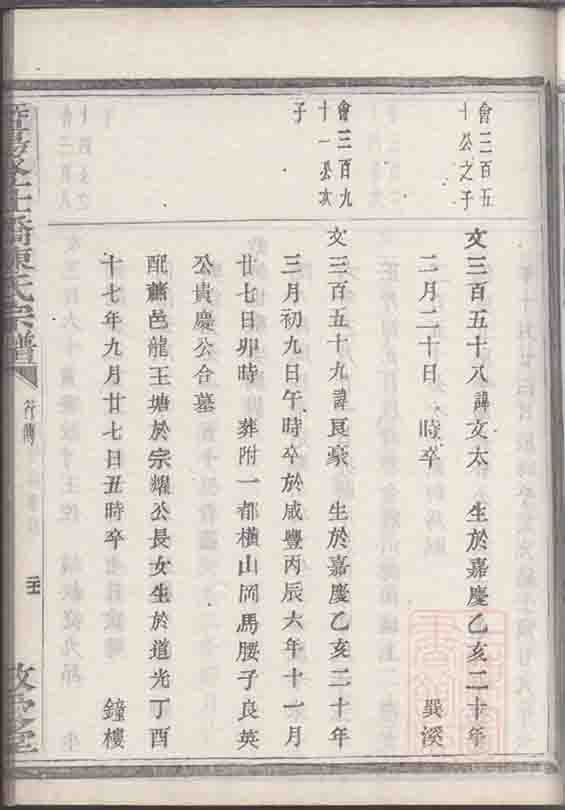 會三百五
十公之子
文三百五十八諱文太 生於嘉慶乙亥二十年
二月二十日 時卒 巽溪
會三百九
十一公次
子
文三百五十九諱良豪 生於嘉慶乙亥二十年
三月初九日午時卒於咸豐丙辰六年十一月
廿七日卯時 葬附一都橫山岡馬腰子良英
公貴慶公合墓
配蕭邑龍王塘於宗耀公長女生於道光丁酉
十七年九月廿七日丑時卒 鐘樓
橋陳氏宗譜
行傳